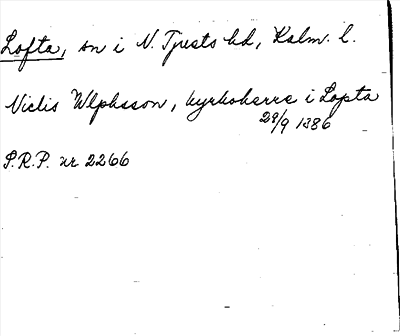 Lofta, sn i N. Tjusts hd, Kalm. l.
Niclis Wlphsson, kyrkoherre i Lopta
29/9 1386
S.R.P. nr 2266